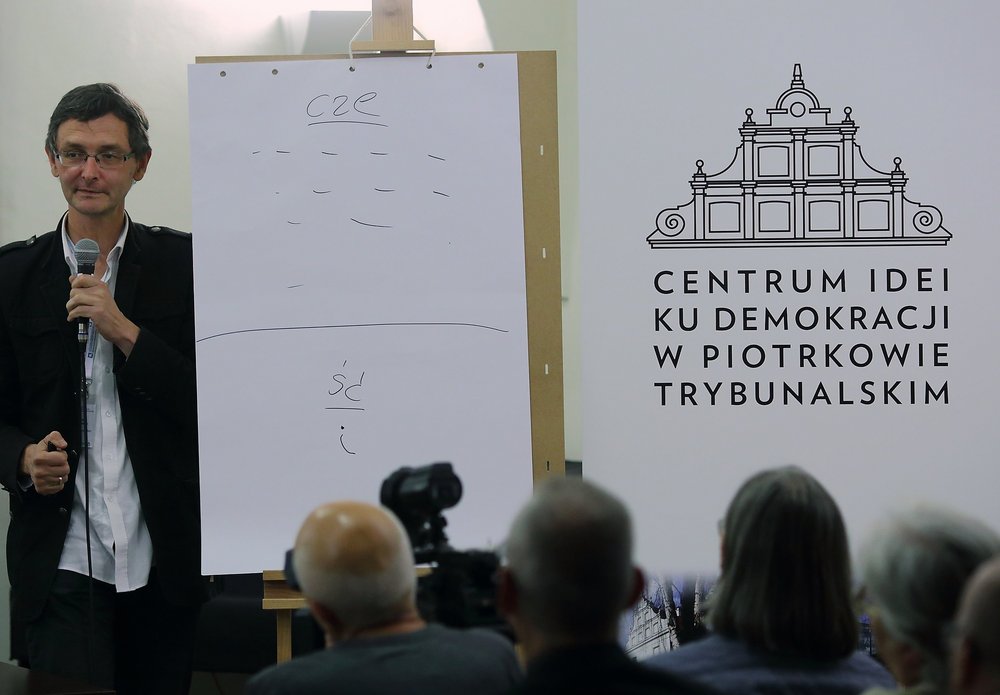 cze
ść
i
CENTRUM IDEI
KU DEMOKRACJI
W PIOTRKOWIE
TRYBUNALSKIM